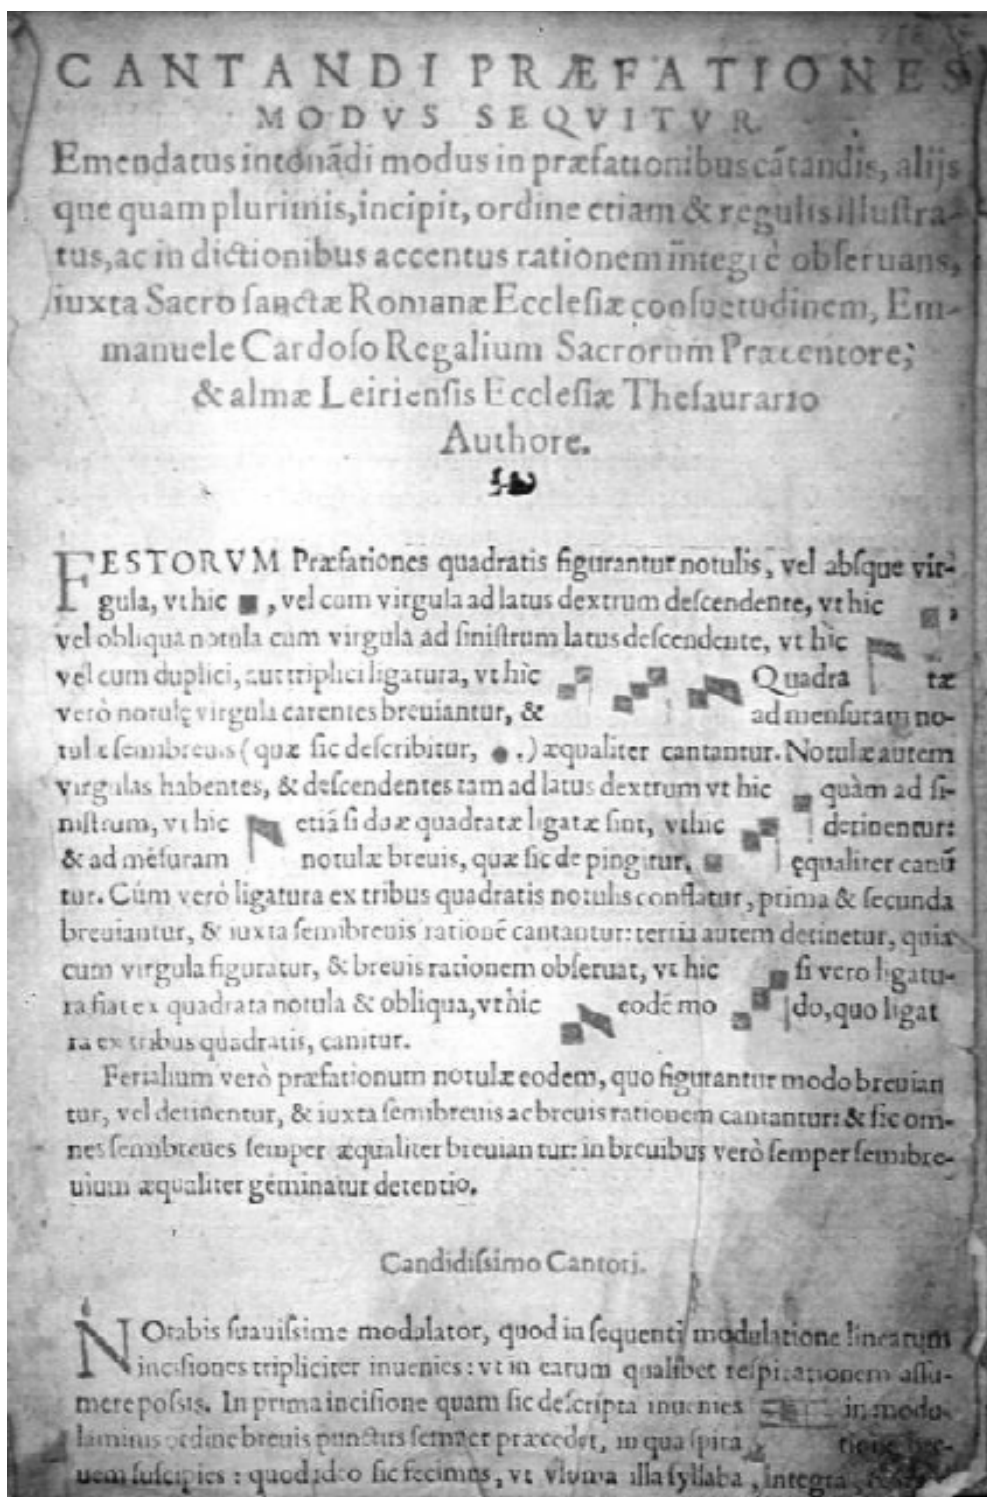 CANTANDI PRÆFATIONES
MODVS SEQVITVR
Emendatus intonãdi modus in præfationibus cãtandis, alijs
que quam plurimis, incipit, ordine etiam & regulis illuſtra-
tus, ac in dictionibus accentus rationem integrè obſeruans,
iuxta Sacro ſanctæ Romanæ Eccleſiæ conſuetudinem, Em-
manuele Cardoſo Regalium Sacrorum Præcentore,
& almæ Leirienſis Eccleſiæ Theſaurario
Authore.
FESTORVM Præfationes quadratis figurantur notulis, vel abſque vir-
gula, vt hic ■, vel cum virgula ad latus dextrum deſcendente, vt hic ,
vel obliqua notula cum virgula ad ſiniſtrum latus deſcendente, vt hìc
vel cum duplici, aut triplici ligatura, vt hìc Quadra tæ
verò notulę virgula carentes breuiantur, & ad menſuram no-
tulæ ſemibreuis (quæ ſic deſcribitur, ● .) æqualiter cantantur. Notulæ autem
virgulas habentes, & deſcendentes tam ad latus dextrum vt hic quàm ad ſi-
niſtrum, vt hic etiã ſi duæ quadratæ ligatæ ſint, vt hic detinentur:
& ad mẽſuram notulæ breuis, quæ ſic de pingitur, ■ ęqualiter canũ
tur. Cúm verò ligatura ex tribus quadratis notulis conflatur, prima & ſecunda
breuiantur, & iuxta ſemibreuis rationẽ cantantur: tertia autem detinetur, quia
cum virgula figuratur, & breuis rationem obſeruat, vt hic ſi vero ligatu-
ra fiat ex quadrata notula & obliqua, vt hic eodẽ mo do, quo ligat
ra ex tribus quadratis, canitur.
Ferialium verò præfationum notulæ eodem, quo figurantur modo breuian
tur, vel detinentur, & iuxta ſemibreuis ac breuis rationem cantantur: & ſic om-
nes ſemibreues ſemper æqualiter breuian tur: in breuibus verò ſemper ſemibre-
uium æqualiter geminatur detentio.
Candidiſsimo Cantori.
NOtabis ſuauiſsime modulator, quod in ſequenti modulatione linearum
inciſiones tripliciter inuenies: vt in earum qualibet reſpirationem aſſu-
mere poſsis. In prima inciſione quam ſic deſcripta inuenies in modu-
laminis ordine breuis punctus ſemper præcedet, in qua ſpira tione bre-
uem ſuſcipies: quod ideo ſic fecimus, vt vltima illa ſyllaba, integra,